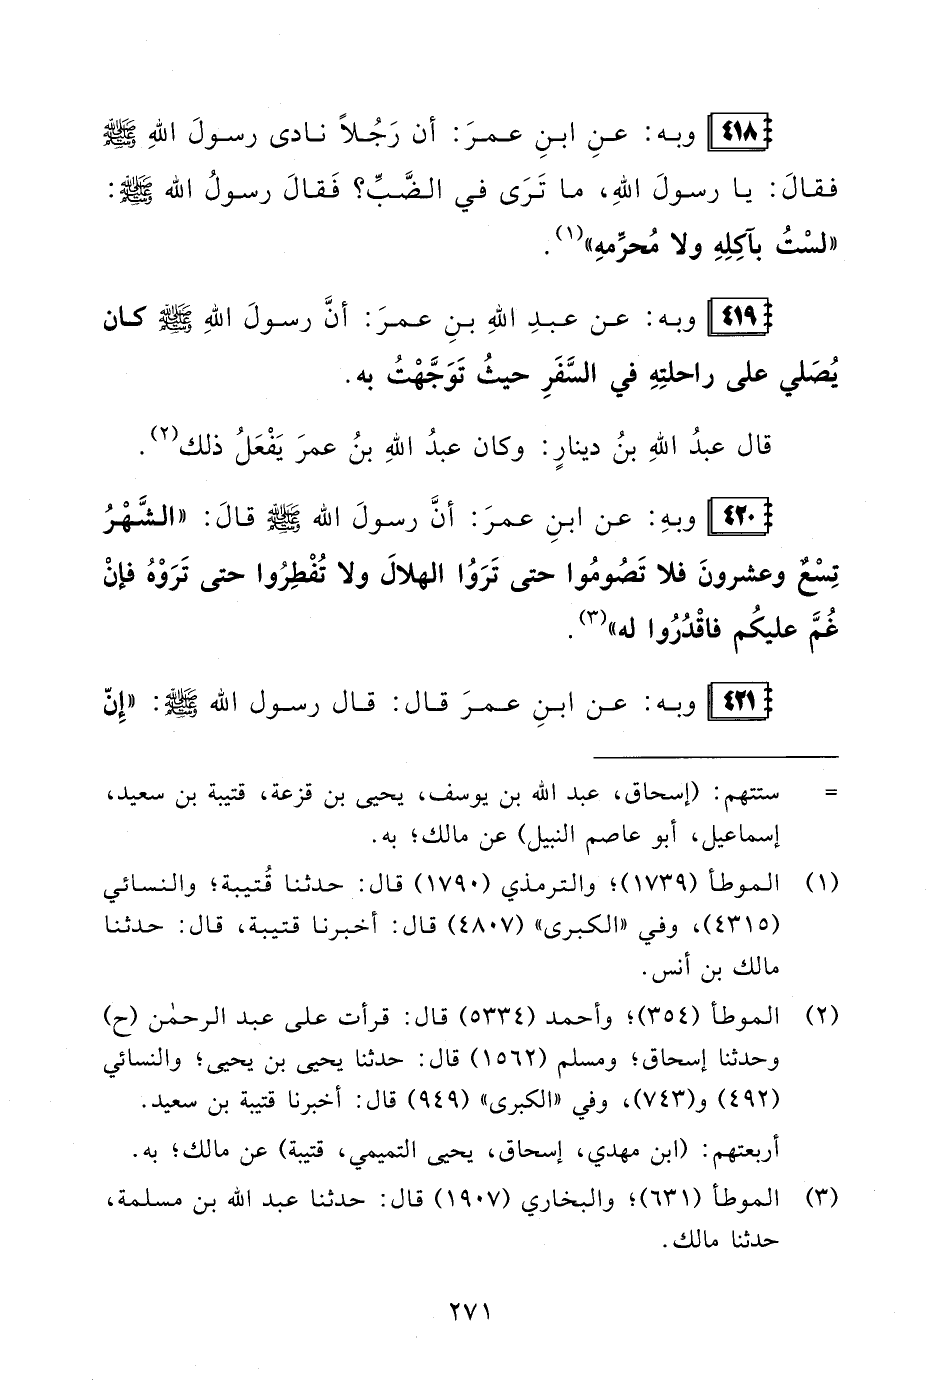 ٤١٨ وبه: عنِ ابنِ عمرَ: أن رَجُلاً نادى رسولَ اللهِ ﷺ
فقالَ: يا رسولَ اللهِ، ما تَرَى في الضَّبِّ؟ فَقالَ رسولُ الله ﷺ:
«لسْتُ بآكِلِهِ ولا مُحرِّمهِ»(١).
٤١٩ وبه: عن عبدِ اللهِ بنِ عمرَ: أنَّ رسولَ اللهِ ﷺ كان
يُصَلي على راحلتِهِ في السَّفَرِ حيثُ تَوَجَّهْتُ به.
قال عبدُ اللهِ بنُ دينارٍ: وكان عبدُ اللهِ بنُ عمرَ يَفْعَلُ ذلك(٢).
٤٢٠ وبهِ: عن ابنِ عمرَ: أنَّ رسولَ الله ﷺ قالَ: «الشَّهْرُ
تِسْعٌ وعشرونَ فلا تَصُومُوا حتى تَرَوُا الهلالَ ولا تُفْطِرُوا حتى تَرَوْهُ فإنْ
غُمَّ عليكُم فاقْدُرُوا له»(٣).
٤٢١ وبه: عن ابنِ عمرَ قال: قال رسول الله ﷺ: «إِنّ
= ستتهم: (إسحاق، عبد الله بن يوسف، يحيى بن قزعة، قتيبة بن سعيد،
إسماعيل، أبو عاصم النبيل) عن مالك؛ به.
(١) الموطأ (١٧٣٩)؛ والترمذي (١٧٩٠) قال: حدثنا قُتيبة؛ والنسائي
(٤٣١٥)، وفي «الكبرى» (٤٨٠٧) قال: أخبرنا قتيبة، قال: حدثنا
مالك بن أنس.
(٢) الموطأ (٣٥٤)؛ وأحمد (٥٣٣٤) قال: قرأت على عبد الرحمٰن (ح)
وحدثنا إسحاق؛ ومسلم (١٥٦٢) قال: حدثنا يحيى بن يحيى؛ والنسائي
(٤٩٢) و(٧٤٣)، وفي «الكبرى» (٩٤٩) قال: أخبرنا قتيبة بن سعيد.
أربعتهم: (ابن مهدي، إسحاق، يحيى التميمي، قتيبة) عن مالك؛ به.
(٣) الموطأ (٦٣١)؛ والبخاري (١٩٠٧) قال: حدثنا عبد الله بن مسلمة،
حدثنا مالك.
٢٧١